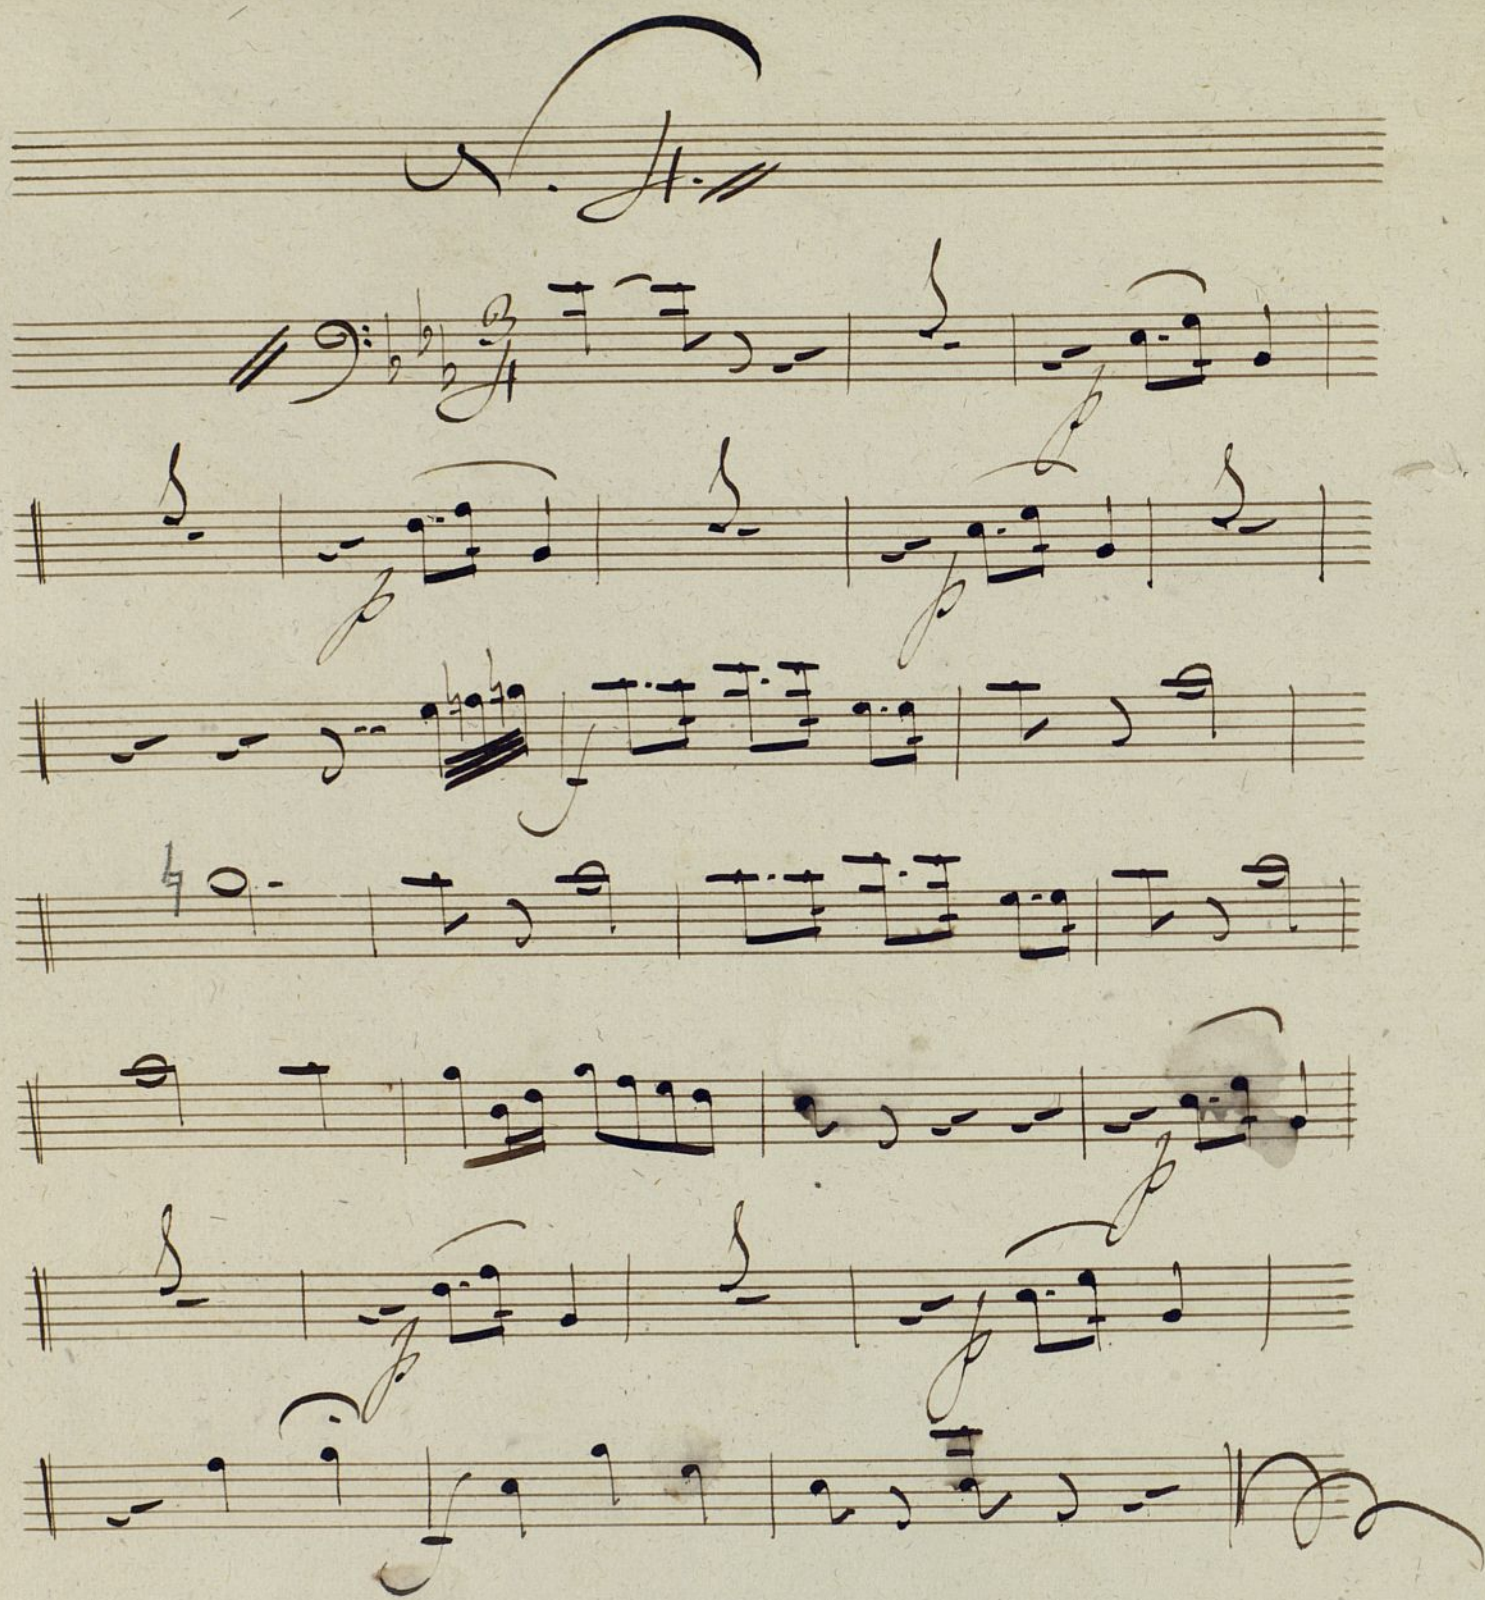 N. 4.
3/4
p
p p
f
p
p p
f